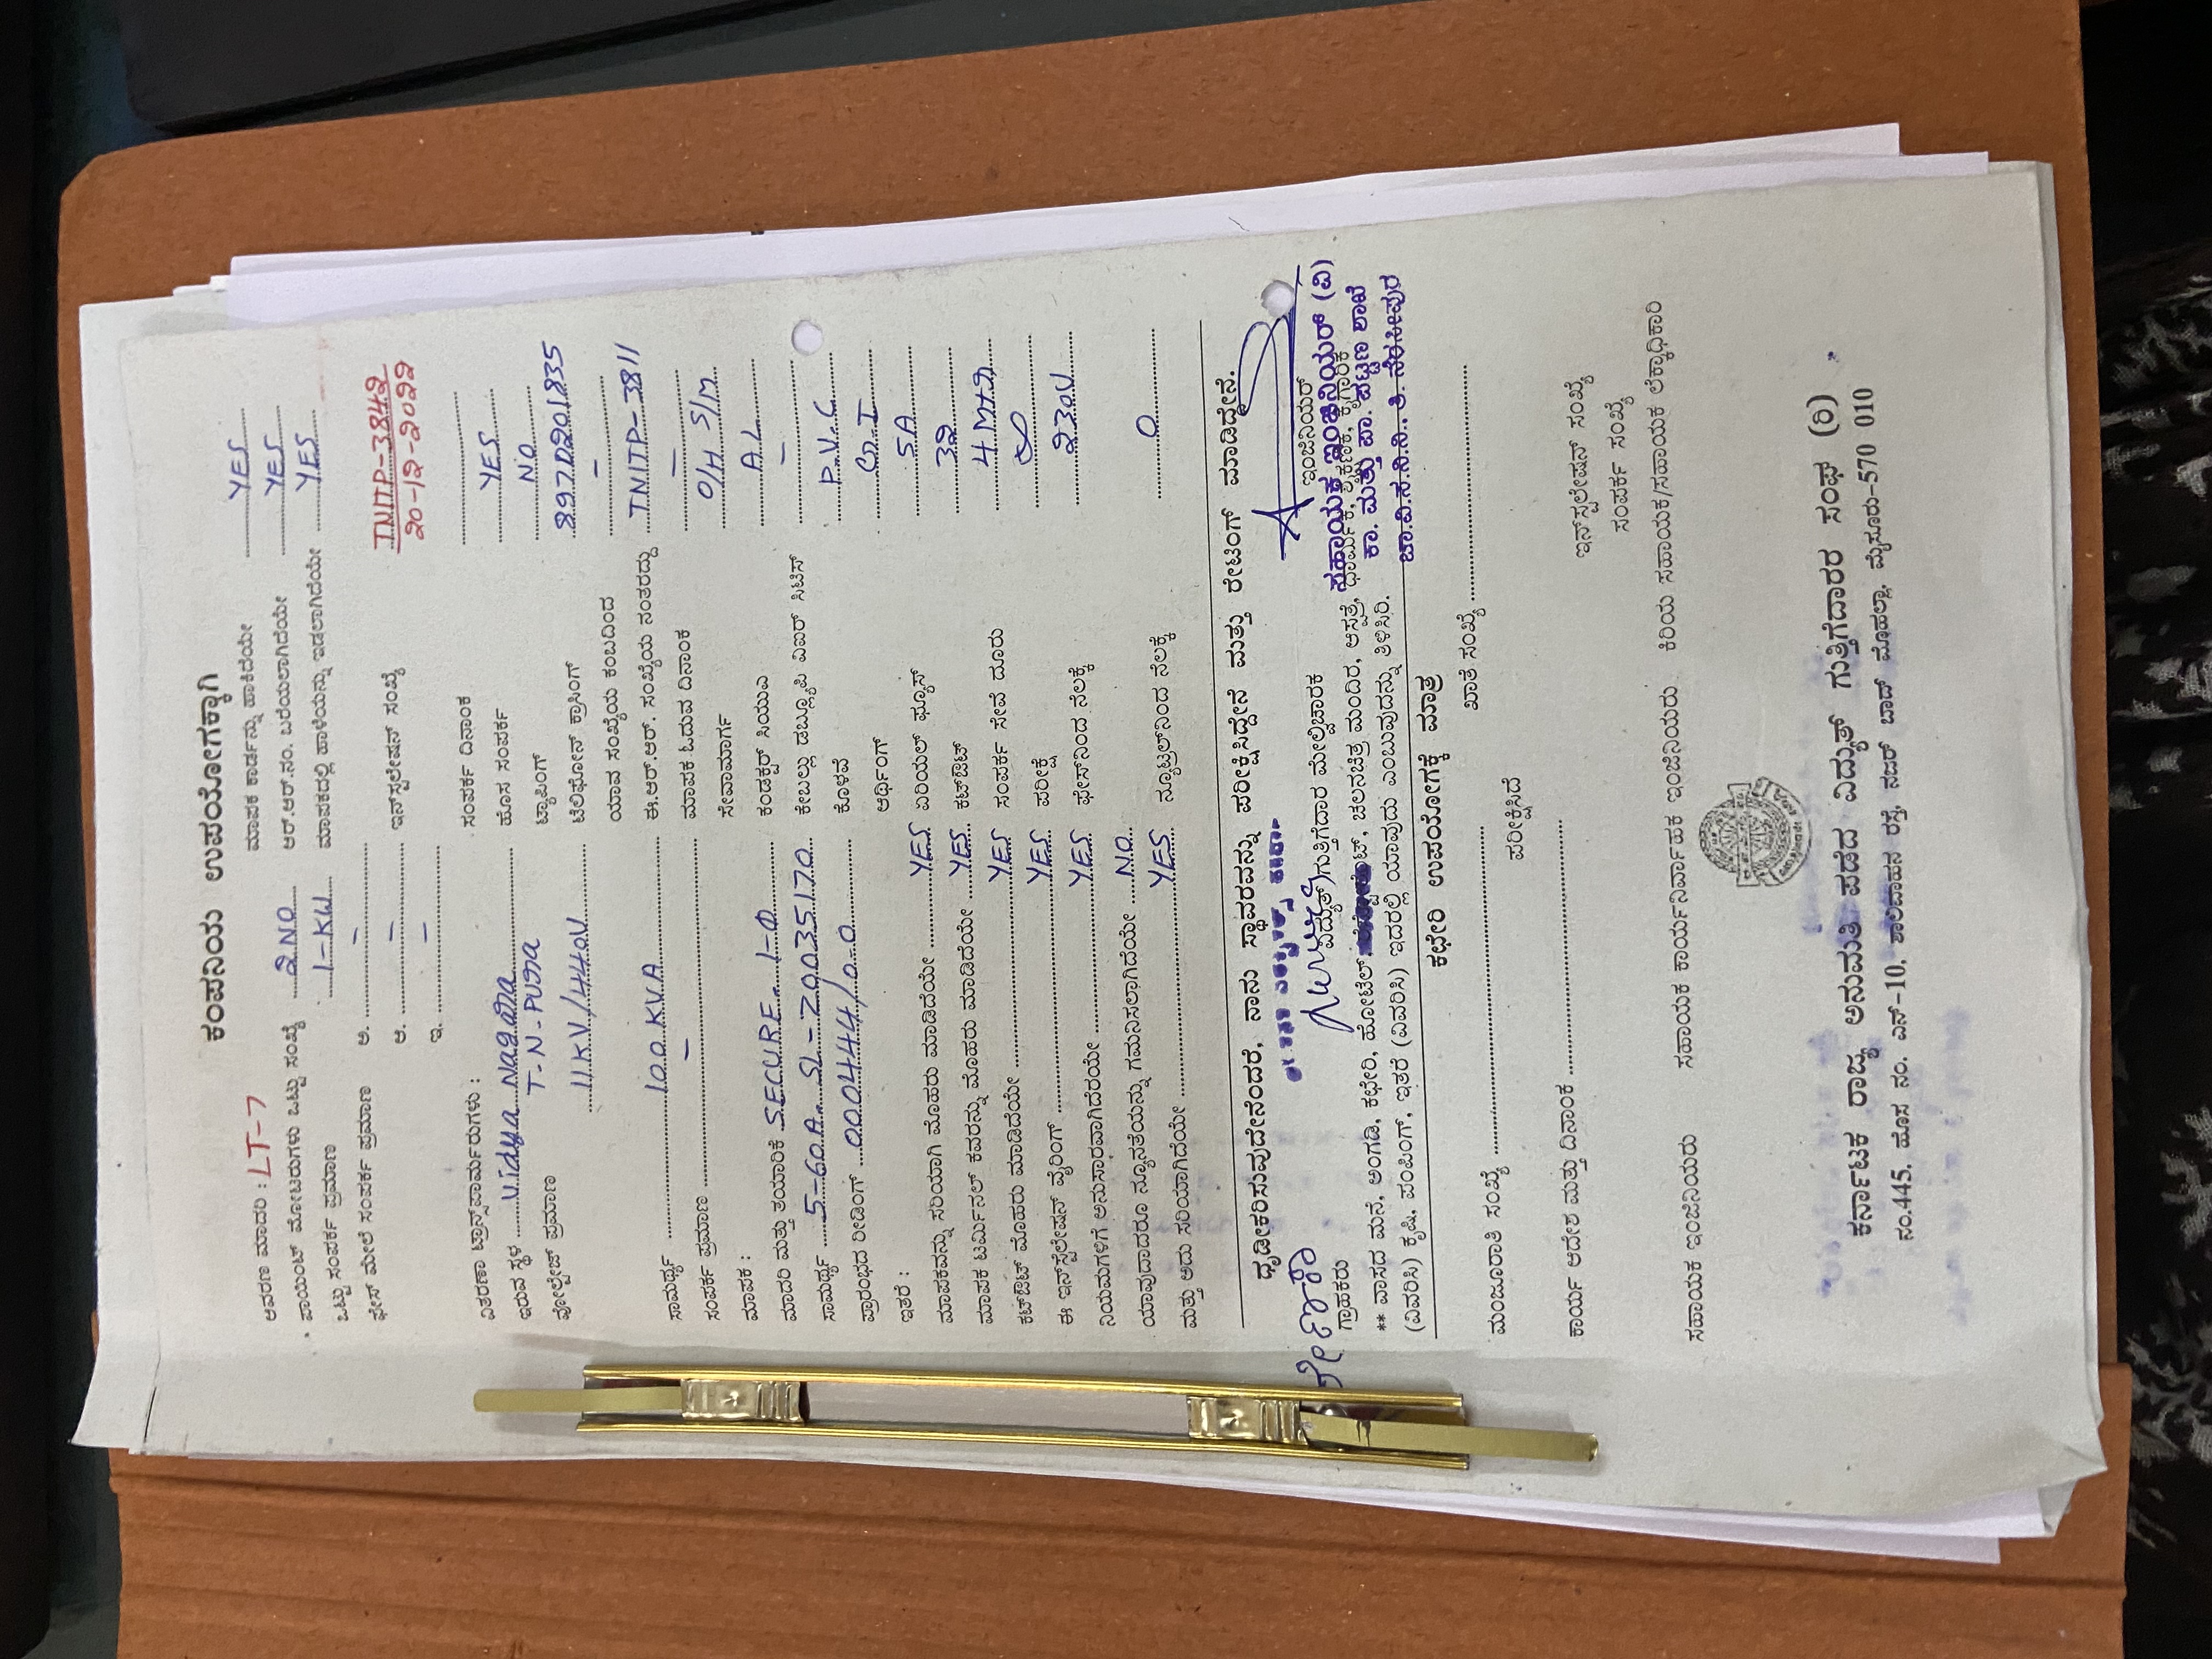 ಕಂಪನಿಯ ಉಪಯೋಗಕ್ಕಾಗಿ
ಆವರಣ ಮಾದರಿ : LT-7
ಮಾಪಕ ಕಾರ್ಡನ್ನು ಹಾಕಿದೆಯೇ YES
ಪಾಯಿಂಟ್ ಮೋಟರುಗಳು ಒಟ್ಟು ಸಂಖ್ಯೆ 2 NO
ಆರ್.ಆರ್.ನಂ. ಬರೆಯಲಾಗಿದೆಯೇ YES
ಒಟ್ಟು ಸಂಪರ್ಕ ಪ್ರಮಾಣ 1-KW
ಮಾಪಕದಲ್ಲಿ ಹಾಳೆಯನ್ನು ಇಡಲಾಗಿದೆಯೇ YES
ಫೇಸ್ ಮೇಲೆ ಸಂಪರ್ಕ ಪ್ರಮಾಣ ಅ. –
ಆ. – ಇನ್‌ಸ್ಟಲೇಷನ್ ಸಂಖ್ಯೆ TNITP-3842
ಇ. – 20-12-2022
ವಿತರಣಾ ಟ್ರಾನ್ಸ್‌ಫಾರ್ಮರುಗಳು :
ಸಂಪರ್ಕ ದಿನಾಂಕ
ಇರುವ ಸ್ಥಳ Vidya Nagara
ಹೊಸ ಸಂಪರ್ಕ YES
T-N-Pura
ಟ್ಯಾಪಿಂಗ್ NO
ವೋಲ್ಟೇಜ್ ಪ್ರಮಾಣ 11KV/440V
ಟೆಲಿಫೋನ್ ಕ್ರಾಸಿಂಗ್ 8970201835
ಯಾವ ಸಂಖ್ಯೆಯ ಕಂಬದಿಂದ –
ಸಾಮರ್ಥ್ಯ 100 KVA
ಈ.ಆರ್.ಆರ್. ಸಂಖ್ಯೆಯ ನಂತರದ್ದು TNITP-3811
ಸಂಪರ್ಕ ಪ್ರಮಾಣ –
ಮಾಪಕ ಓದುವ ದಿನಾಂಕ –
ಮಾಪಕ :
ಸೇವಾಮಾರ್ಗ O/H S/M
ಮಾದರಿ ಮತ್ತು ತಯಾರಿಕೆ SECURE 1-Φ
ಕಂಡಕ್ಟರ್ ಸಿಯುಎ AL
ಸಾಮರ್ಥ್ಯ 5-60A SL-20035170
ಕೇಬಲ್ಲು ಡಬ್ಲ್ಯೂಪಿ ವಿಐಆರ್ ಸಿಟಿಸ್ –
ಪ್ರಾರಂಭದ ರೀಡಿಂಗ್ 000444/0-0
ಕೊಳವೆ P.V.C
ಇತರೆ :
ಅರ್ಥಿಂಗ್ G.I
ಮಾಪಕವನ್ನು ಸರಿಯಾಗಿ ಮೊಹರು ಮಾಡಿದೆಯೇ YES
ಏರಿಯಲ್ ಫ್ಯೂಸ್ 5A
ಮಾಪಕ ಟರ್ಮಿನಲ್ ಕವರನ್ನು ಮೊಹರು ಮಾಡಿದೆಯೇ YES
ಕಟ್‌ಔಟ್ 32
ಕಟ್‌ಔಟ್ ಮೊಹರು ಮಾಡಿದೆಯೇ YES
ಸಂಪರ್ಕ ಸೇವೆ ದೂರು 4 MΩ
ಈ ಇನ್‌ಸ್ಟಲೇಷನ್ ವೈರಿಂಗ್ YES
ಪರೀಕ್ಷೆ
ನಿಯಮಗಳಿಗೆ ಅನುಸಾರವಾಗಿದೆರೆಯೇ YES
ಫೇಸ್‌ನಿಂದ ನೆಲಕ್ಕೆ 230V
ಯಾವುದಾದರೂ ನ್ಯೂನತೆಯನ್ನು ಗಮನಿಸಲಾಗಿದೆಯೇ NO
ಮತ್ತು ಅದು ಸರಿಯಾಗಿದೆಯೇ YES
ನ್ಯೂಟ್ರಲ್‌ನಿಂದ ನೆಲಕ್ಕೆ 0
ಧೃಡೀಕರಿಸುವುದೇನೆಂದರೆ, ನಾನು ಸ್ಥಾವರವನ್ನು ಪರೀಕ್ಷಿಸಿದ್ದೇನೆ ಮತ್ತು ರೇಟಿಂಗ್ ಮಾಡಿದ್ದೇನೆ.
ಗ್ರಾಹಕರು
ವಿದ್ಯುತ್ ಗುತ್ತಿಗೆದಾರ ಮೇಲ್ವಿಚಾರಕ
ಇಂಜಿನಿಯರ್
ಸಹಾಯಕ ಇಂಜಿನಿಯರ್ (ವಿ)
ಕಾ. ಮತ್ತು ಪಾ. ಪಟ್ಟಣ ಶಾಖೆ
ಚಾ.ವಿ.ಸ.ನಿ.ನಿ., ತಿ. ನರಸೀಪುರ
** ವಾಸದ ಮನೆ, ಅಂಗಡಿ, ಕಛೇರಿ, ಹೋಟೆಲ್, ಚಲನಚಿತ್ರ ಮಂದಿರ, ಆಸ್ಪತ್ರೆ, ಧಾರ್ಮಿಕ, ಶೈಕ್ಷಣಿಕ, ಕೈಗಾರಿಕೆ
(ವಿವರಿಸಿ) ಕೃಷಿ, ಪಂಪಿಂಗ್, ಇತರೆ (ವಿವರಿಸಿ) ಇದರಲ್ಲಿ ಯಾವುದು ಎಂಬುವುದನ್ನು ತಿಳಿಸಿರಿ.
ಕಛೇರಿ ಉಪಯೋಗಕ್ಕೆ ಮಾತ್ರ
ಮಂಜೂರಾತಿ ಸಂಖ್ಯೆ
ಖಾತೆ ಸಂಖ್ಯೆ
ಪರೀಕ್ಷಿಸಿದೆ
ಕಾರ್ಯ ಆದೇಶ ಮತ್ತು ದಿನಾಂಕ
ಇನ್‌ಸ್ಟಲೇಷನ್ ಸಂಖ್ಯೆ
ಸಂಪರ್ಕ ಸಂಖ್ಯೆ
ಸಹಾಯಕ ಇಂಜಿನಿಯರು ಸಹಾಯಕ ಕಾರ್ಯನಿರ್ವಾಹಕ ಇಂಜಿನಿಯರು ಕಿರಿಯ ಸಹಾಯಕ/ಸಹಾಯಕ ಲೆಕ್ಕಾಧಿಕಾರಿ
ಕರ್ನಾಟಕ ರಾಜ್ಯ ಅನುಮತಿ ಪಡೆದ ವಿದ್ಯುತ್ ಗುತ್ತಿಗೆದಾರರ ಸಂಘ (ರಿ)
ನಂ.445, ಹೊಸ ನಂ. ಎನ್-10, ಶಾಲಿವಾಹನ ರಸ್ತೆ, ನಜರ್ ಬಾದ್ ಮೊಹಲ್ಲಾ, ಮೈಸೂರು-570 010